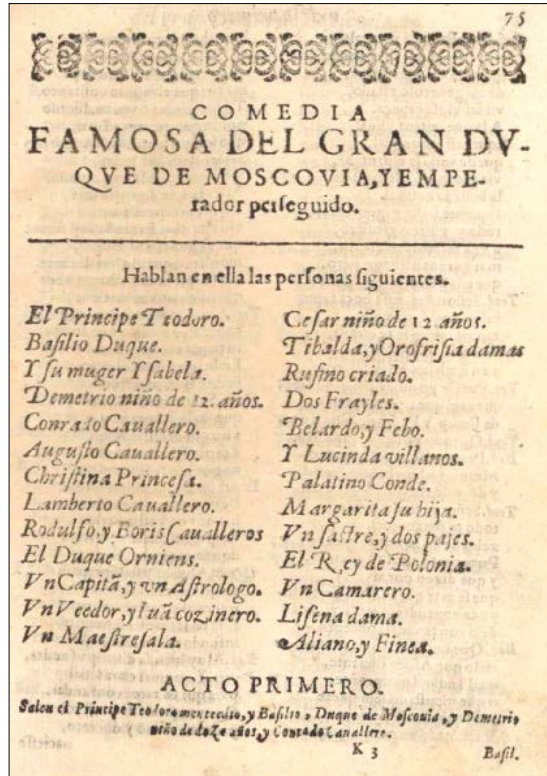 75
COMEDIA
FAMOSA DEL GRAN DV-
QVE DE MOSCOVIA, Y EMPE-
rador perseguido.
Hablan en ella las personas siguientes.
El Principe Teodoro.
Basilio Duque.
Y su muger Ysabela.
Demetrio niño de 12. años.
Conrado Cauallero.
Augusto Cauallero.
Christina Princesa.
Lamberto Cauallero.
Rodulfo, y Boris Caualleros
El Duque Orniens.
Vn Capitã, y vn Astrologo.
Vn Veedor, y Iuã cozinero.
Vn Maestresala.
Cesar niño de 12 años.
Tibalda, y Orofrisia damas
Rufino criado.
Dos Frayles.
Belardo, y Febo.
Y Lucinda villanos.
Palatino Conde.
Margarita su hija.
Vn sastre, y dos pajes.
El Rey de Polonia.
Vn Camarero.
Lisena dama.
Aliano, y Finea.
ACTO PRIMERO.
Salen el Principe Teodoro mentecato, y Basilio, Duque de Moscouia, y Demetrio
niño de doze años, y Conrado Cauallero.
K 3
Basil.